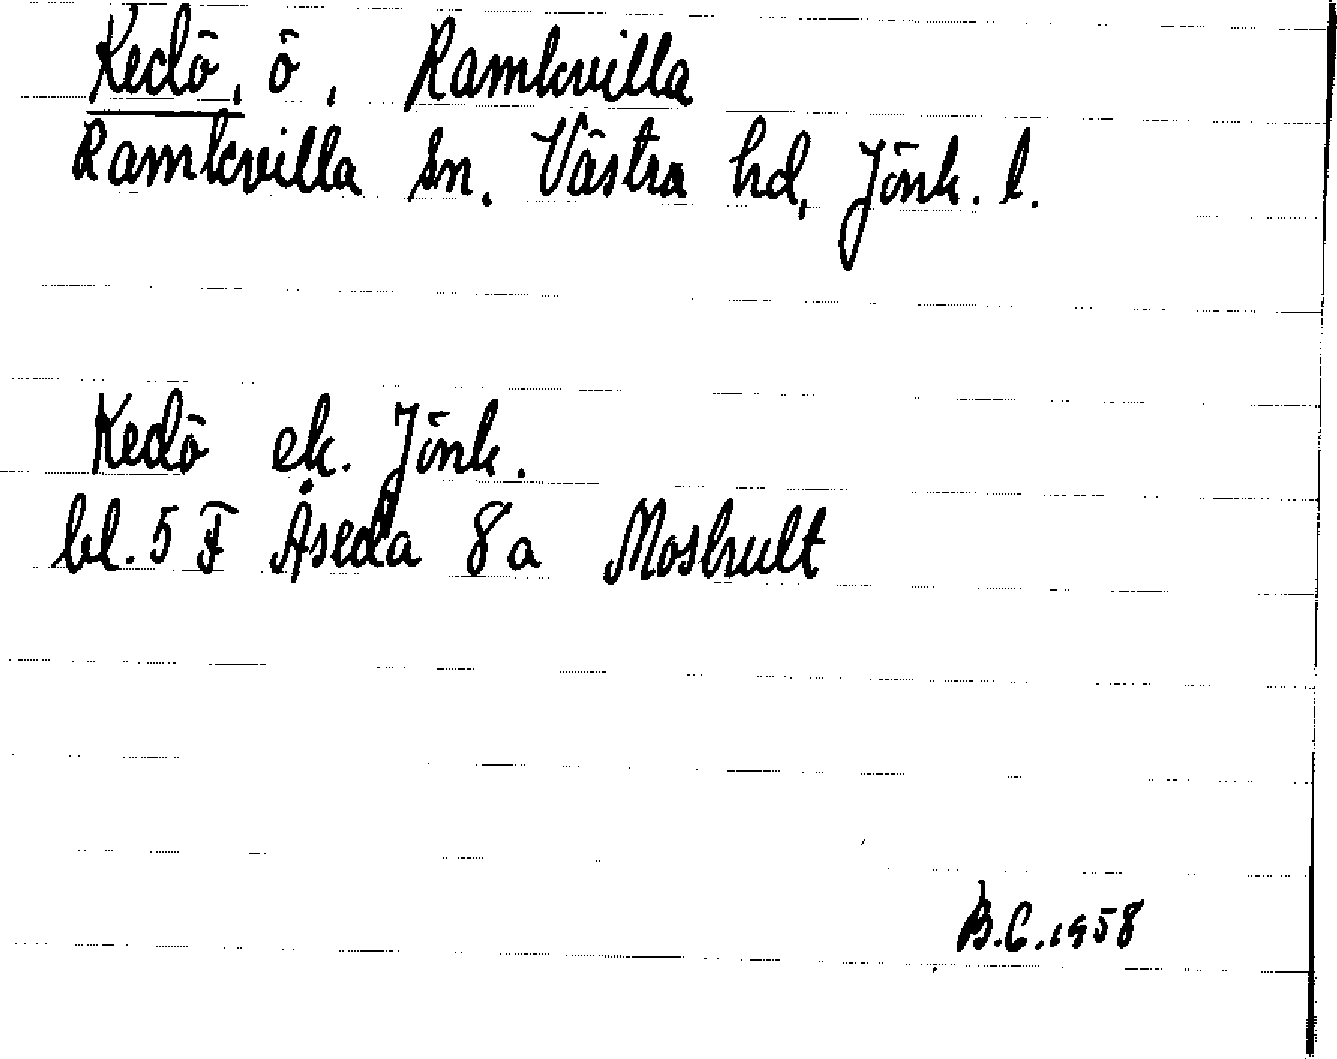 Kedö, ö, Ramkvilla
Ramkvilla sn. Västra hd, Jönk. l.
Kedö ek. Jönk.
bl. 5 F Åseda 8 a Moshult
B.C. 1958